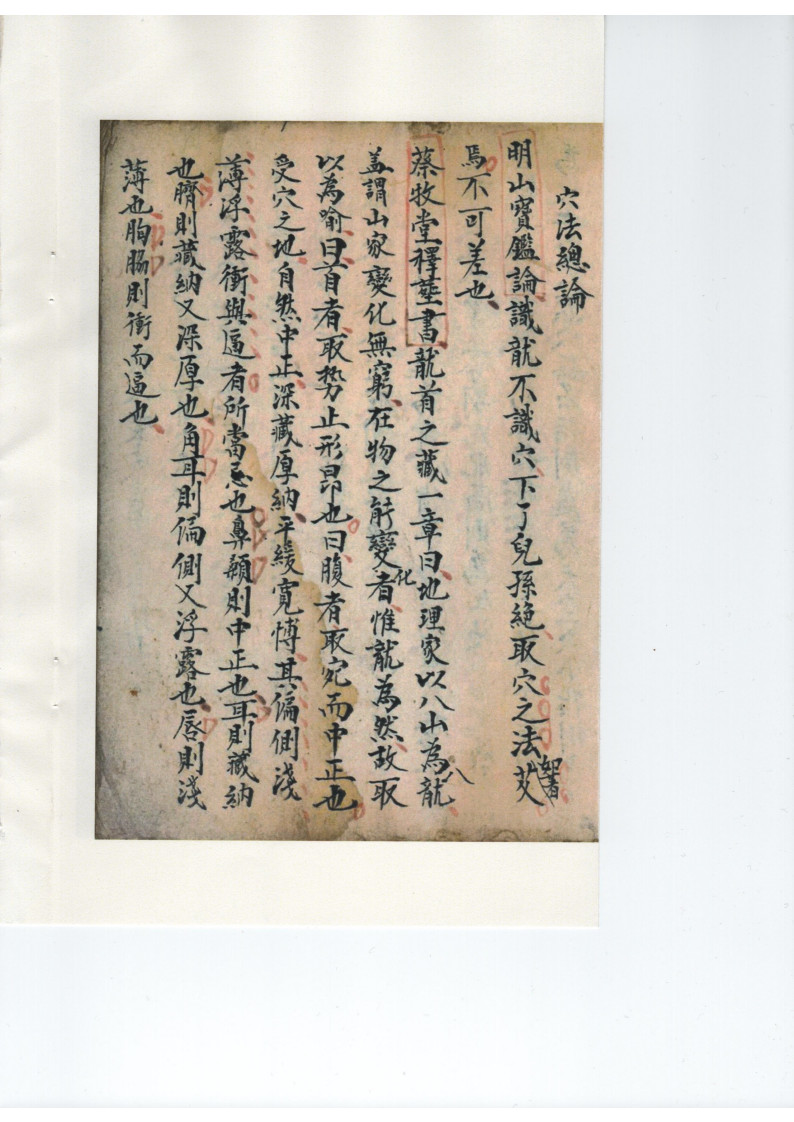 穴法總論
明山寶鑑論識龍不識穴下了兒孫絕取穴之法如著艾
焉不可差也
蔡牧堂釋塟書龍首之藏一章曰地理家以八山為八龍
盖謂山家變化無窮在物之能變化者惟龍為然故取
以為喻曰首者取势止形昂也曰腹者取宛而中正也
受穴之地自然中正深藏厚納平緩寬愽其偏側淺
薄浮露衝與逼者所當忌也鼻顙則中正也耳則藏納
也臍則藏納又深厚也角耳則偏側又浮露也唇則淺
薄也胸脇則衝而逼也